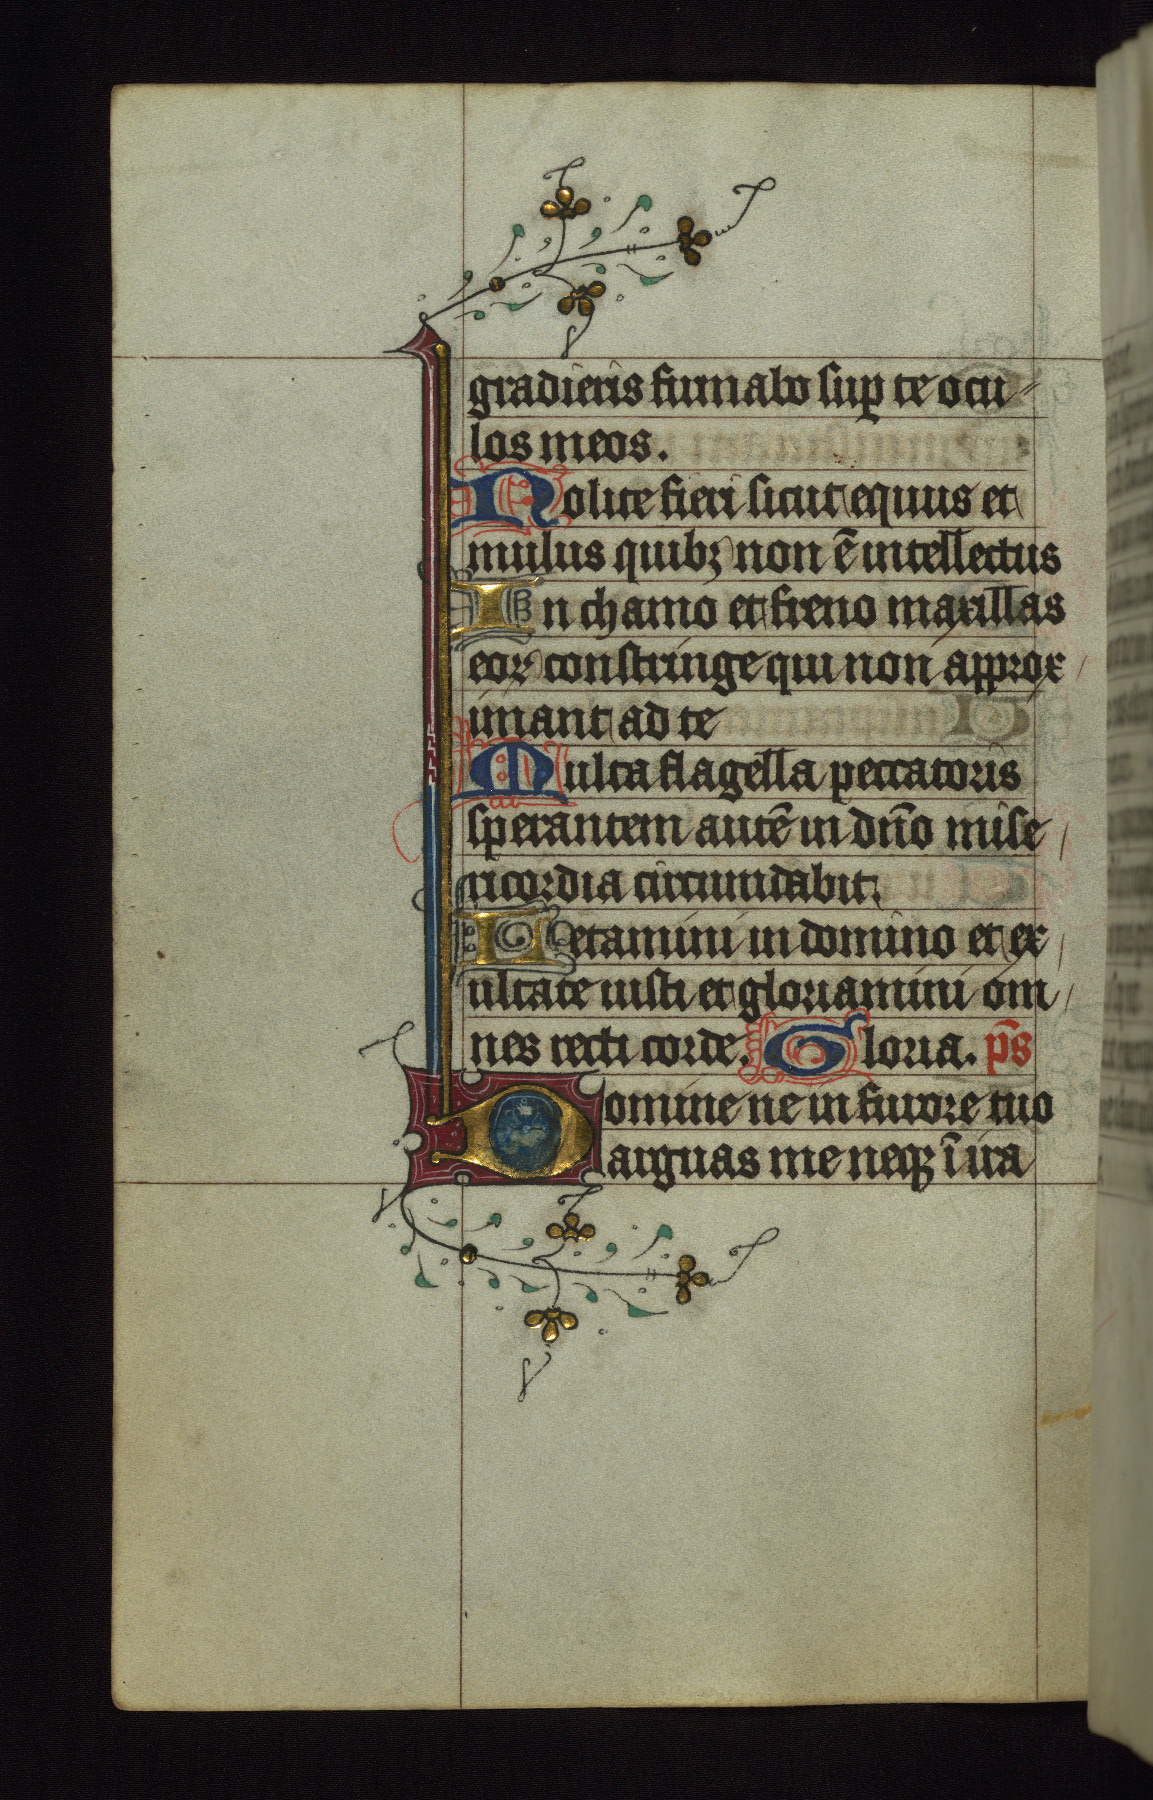 gradieris firmabo sup te ocu
los meos.
Nolite fieri sicut equus et
mulus quibꝫ non ē intellectus
In chamo et freno maxillas
eoꝝ constringe qui non approx
imant ad te
Multa flagella peccatoris
sperantem autē in dn̄o mise
ricordia circumdabit.
Letamini in domino et ex
ultate iusti et gloriamini om
nes recti corde. Gloria. ps̄
Domine ne in furore tuo
arguas me neqꝫ ī ira